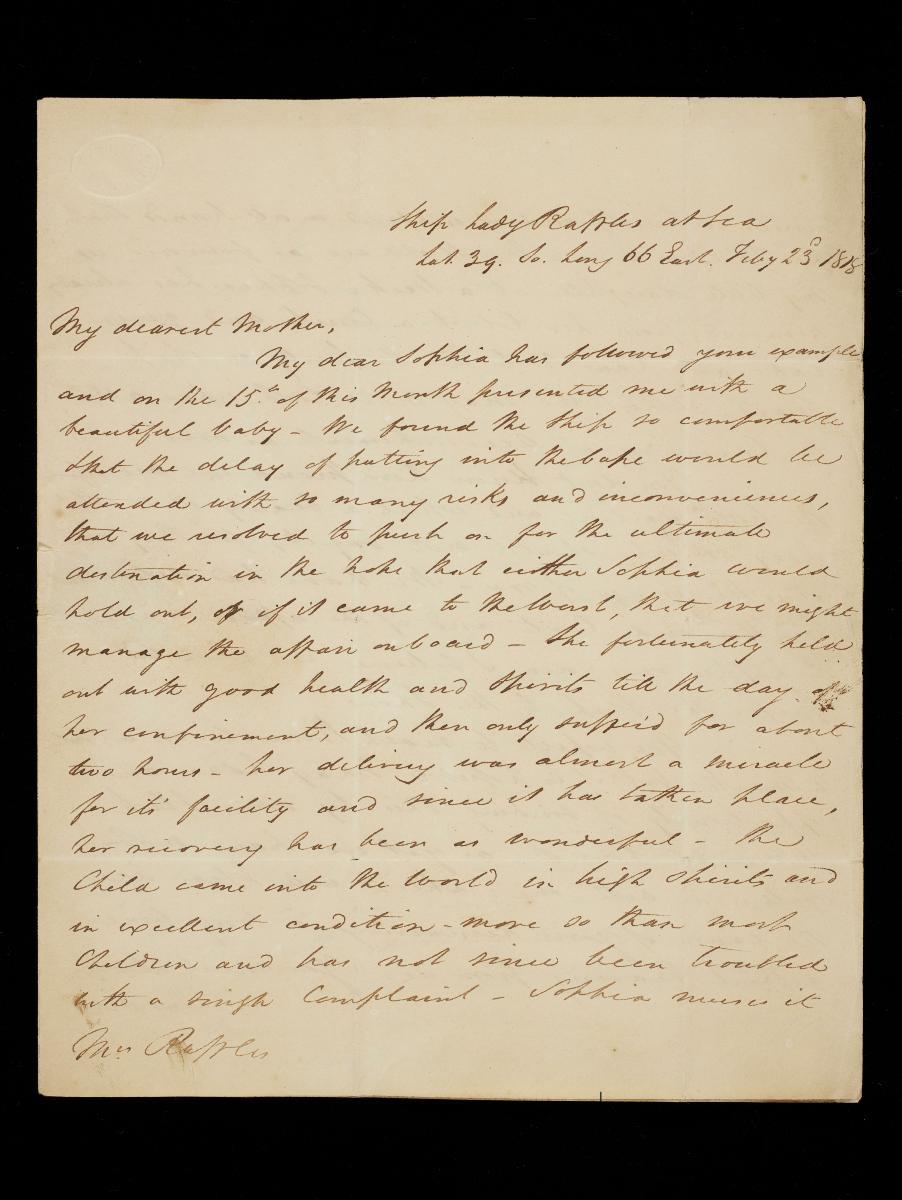 Ship Lady Raffles at Sea
Lat. 39. So. Long 66 East. Feby 23d 1818
My dearest Mother,
My dear Sophia has followed your example
and on the 15th of this Month presented me with a
beautiful baby - We found the Ship so comfortable
& that the delay of putting into the Cape would be
attended with so many risks and inconveniences,
that we resolved to push on for the ultimate
destination in the hope that either Sophia would
hold out, or if it came to the worst, that we might
manage the affair on board - She fortunately held
out with good health and Spirits till the day of
her confinement, and then only suffer'd for about
two hours - her delivery was almost a miracle
for its' facility and since it has taken place,
her recovery has been as wonderful - the
Child came into the World in high Spirits and
in excellent condition - more so than most
Children and has not since been troubled
with a single Complaint - Sophia nurses it
Mrs Raffles